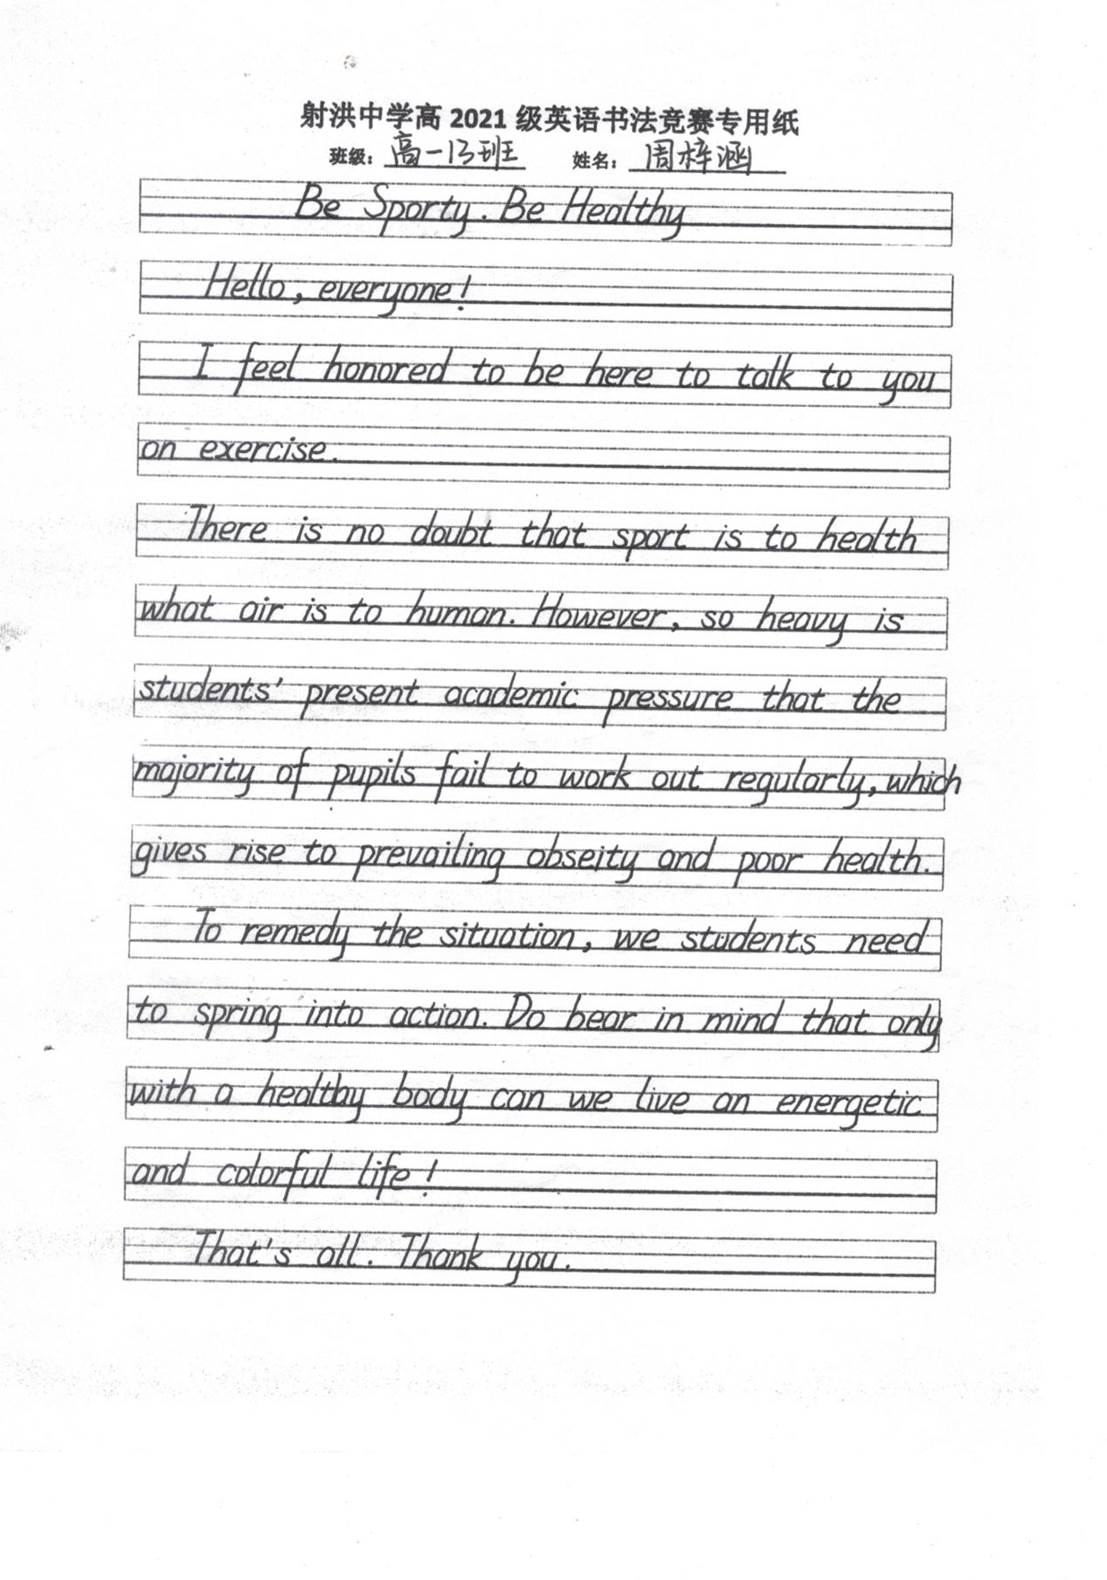 射洪中学高 2021 级英语书法竞赛专用纸
班级：高一13班 姓名：周梓涵
Be Sporty. Be Healthy
Hello, everyone!
I feel honored to be here to talk to you
on exercise.
There is no doubt that sport is to health
what air is to human. However, so heavy is
students' present academic pressure that the
majority of pupils fail to work out regularly, which
gives rise to prevailing obseity and poor health.
To remedy the situation, we students need
to spring into action. Do bear in mind that only
with a healthy body can we live an energetic
and colorful life!
That's all. Thank you.